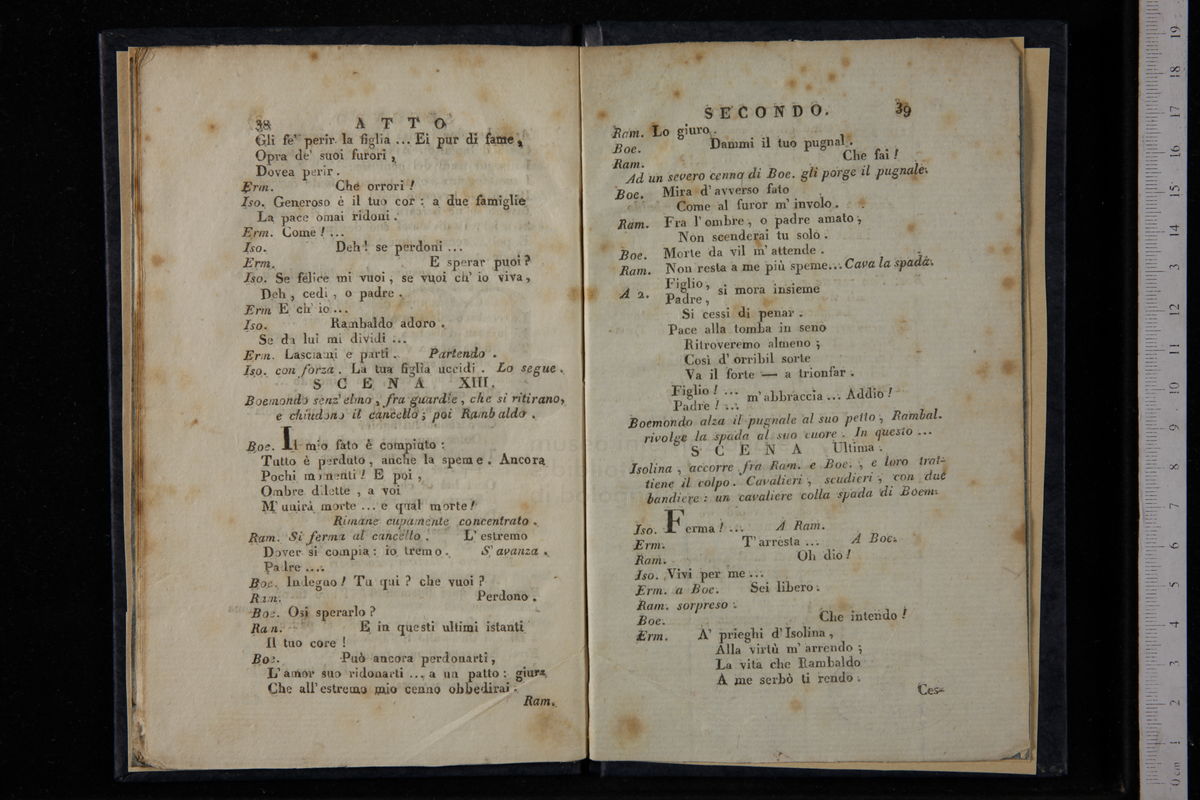 38 ATTO
Gli fe' perir la figlia ... Ei pur di fame,
Opra de' suoi furori,
Dovea perir.
Erm. Che orrori!
Iso. Generoso è il tuo cor: a due famiglie
La pace omai ridoni.
Erm. Come! ...
Iso. Deh! se perdoni ...
Erm. E sperar puoi?
Iso. Se felice mi vuoi, se vuoi ch' io viva,
Deh, cedi, o padre.
Erm E ch' io ...
Iso. Rambaldo adoro.
Se da lui mi dividi ...
Erm. Lasciami e parti. Partendo.
Iso. con forza. La tua figlia uccidi. Lo segue.
SCENA XIII.
Boemondo senz' elmo, fra guardie, che si ritirano,
e chiudono il cancello; poi Rambaldo.
Boe. Il mio fato è compiuto:
Tutto è perduto, anche la speme. Ancora
Pochi momenti! E poi,
Ombre dilette, a voi
M' unirà morte ... e qual morte!
Rimane cupamente concentrato.
Ram. Si ferma al cancello. L' estremo
Dover si compia: io tremo. S' avanza.
Padre ....
Boe. Indegno! Tu qui? che vuoi?
Ram. Perdono.
Boe. Osi sperarlo?
Ram. E in questi ultimi istanti
Il tuo core!
Boe. Può ancora perdonarti,
L' amor suo ridonarti ... a un patto: giura,
Che all' estremo mio cenno obbedirai.
Ram.
SECONDO. 39
Ram. Lo giuro.
Boe. Dammi il tuo pugnal.
Ram. Che fai!
Ad un severo cenno di Boe. gli porge il pugnale.
Boe. Mira d' avverso fato
Come al furor m' involo.
Ram. Fra l' ombre, o padre amato,
Non scenderai tu solo.
Boe. Morte da vil m' attende.
Ram. Non resta a me più speme... Cava la spada.
A 2. Figlio, si mora insieme
Padre,
Si cessi di penar.
Pace alla tomba in seno
Ritroveremo almeno;
Così d' orribil sorte
Va il forte — a trionfar.
Figlio! ... m' abbraccia ... Addio!
Padre! ...
Boemondo alza il pugnale al suo petto, Rambal.
rivolge la spada al suo cuore. In questo ...
SCENA Ultima.
Isolina, accorre fra Ram. e Boe., e loro trat-
tiene il colpo. Cavalieri, scudieri, con due
bandiere: un cavaliere colla spada di Boem.
Iso. Ferma! ... A Ram.
Erm. T' arresta ... A Boe.
Ram. Oh dio!
Iso. Vivi per me ...
Erm. a Boe. Sei libero.
Ram. sorpreso.
Boe. Che intendo!
Erm. A' prieghi d' Isolina,
Alla virtù m' arrendo;
La vita che Rambaldo
A me serbò ti rendo.
Ces-